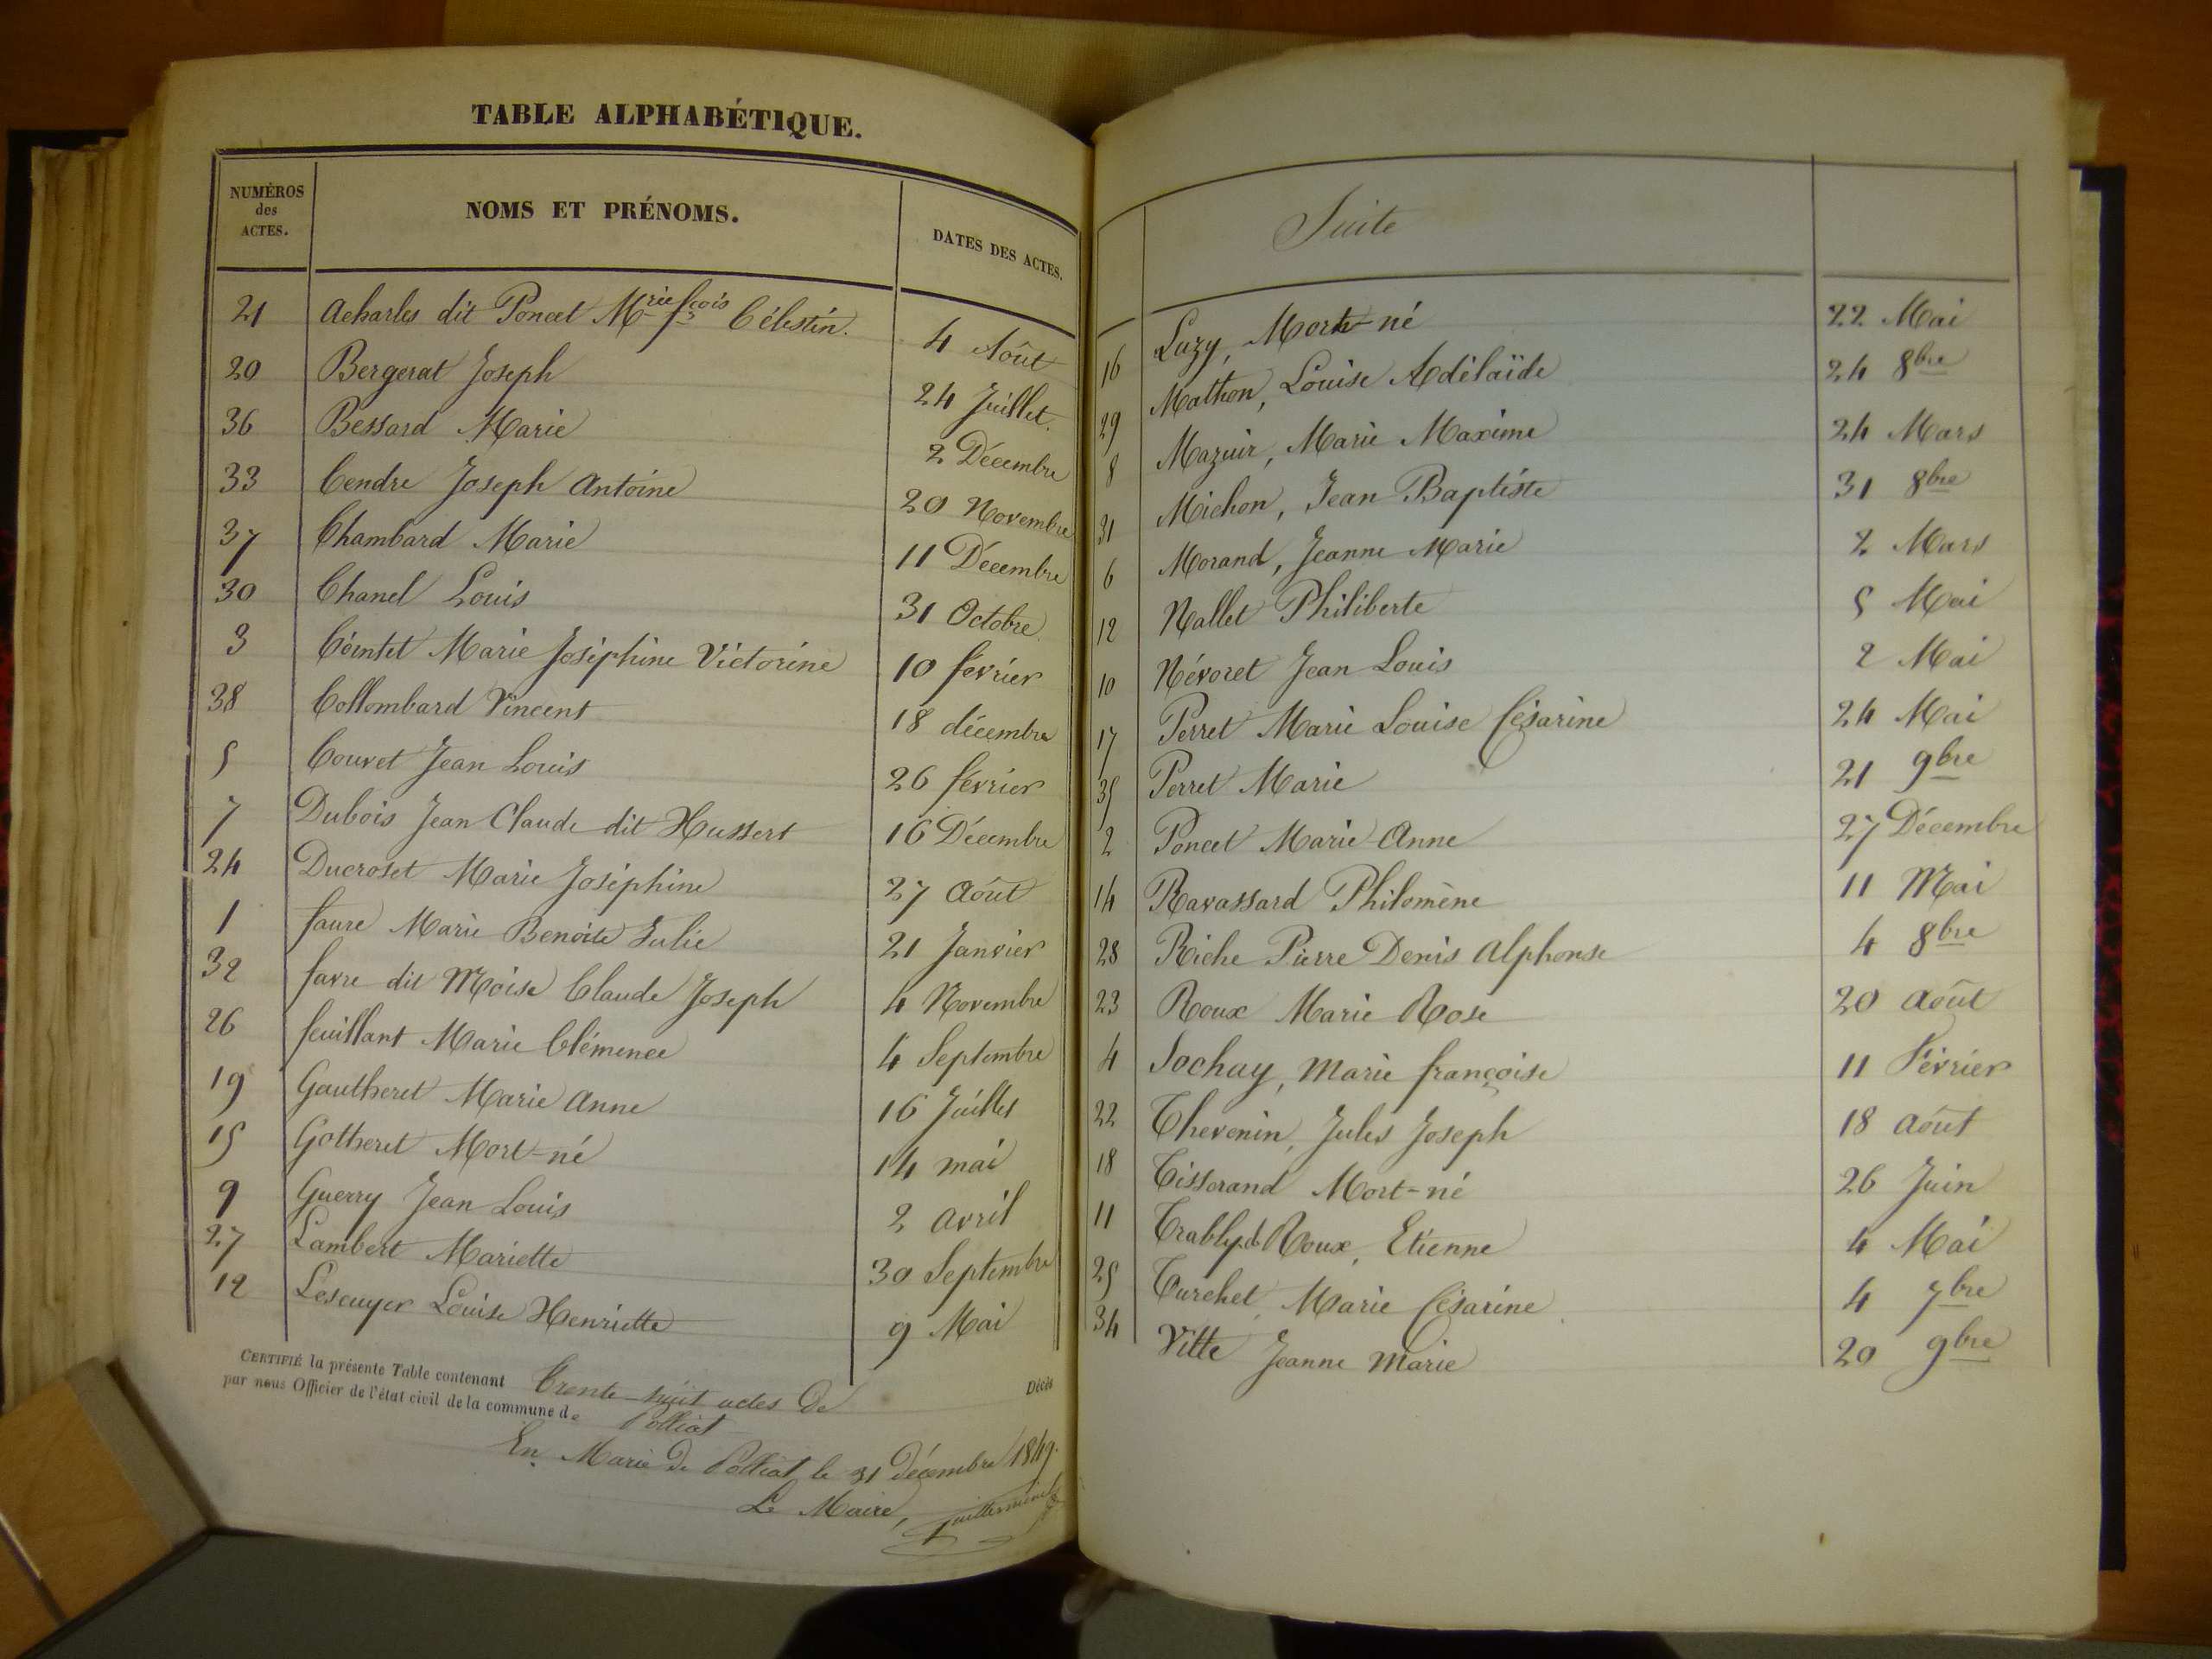 TABLE ALPHABÉTIQUE.
NUMÉROS des ACTES. NOMS ET PRÉNOMS. DATES DES ACTES.
21 Acharles dit Poncet Mrie fçois Célestin. 4 Août
20 Bergerat Joseph 24 Juillet.
36 Bessard Marie 2 Décembre
33 Cendre Joseph Antoine 20 Novembre
37 Chambard Marie 11 Décembre
30 Chanel Louis 31 Octobre
3 Cointet Marie Joséphine Victorine 10 février
38 Collombard Vincent 18 décembre
5 Couvet Jean Louis 26 février
7 Dubois Jean Claude dit Hussert 16 Décembre
24 Ducroset Marie Joséphine 27 Août
1 faure Marie Benoite Julie 21 Janvier
32 favre dit Moise Claude Joseph 4 Novembre
26 feuillant Marie Clémence 4 Septembre
19 Gautheret Marie Anne 16 Juillet
15 Gotheret Mort-né 14 mai
9 Guerry Jean Louis 2 avril
27 Lambert Mariette 30 Septembre
12 Lescuyer Louise Henriette 9 Mai
CERTIFIÉ la présente Table contenant Trente-huit actes de Décès
par nous Officier de l'état civil de la commune de Polliat
En Marie de Polliat le 31 décembre 1849.
Le Maire,
Suite
16 Luzy, Mort-né 22 Mai
29 Mathon, Louise Adélaïde 24 8bre
8 Mazuir, Marie Maxime 24 Mars
31 Michon, Jean Baptiste 31 8bre
6 Morand, Jeanne Marie 2 Mars
12 Nallet Philiberte 5 Mai
10 Névoret Jean Louis 2 Mai
17 Perret Marie Louise Césarine 24 Mai
35 Perret Marie 21 9bre
2 Poncet Marie-Anne 27 Décembre
14 Ravassard Philomène 11 Mai
28 Riche Pierre Denis Alphonse 4 8bre
23 Roux Marie Rose 20 Août
4 Sochay, Marie françoise 11 Février
22 Thevenin, Jules Joseph 18 août
18 Tisserand Mort-né 26 Juin
11 Trably dt Roux, Etienne 4 Mai
25 Turchet Marie Césarine 4 7bre
34 Vitte Jeanne Marie 20 9bre